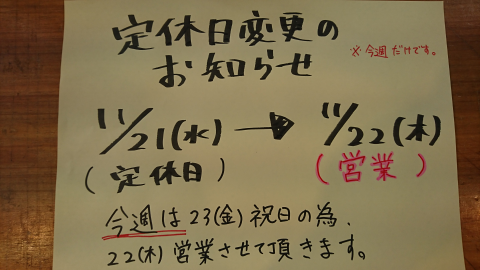 定休日変更の
お知らせ
※今週だけです。
11/21(水) → 11/22(木)
(定休日) (営業)
今週は23(金)祝日の為、
22(木)営業させて頂きます。